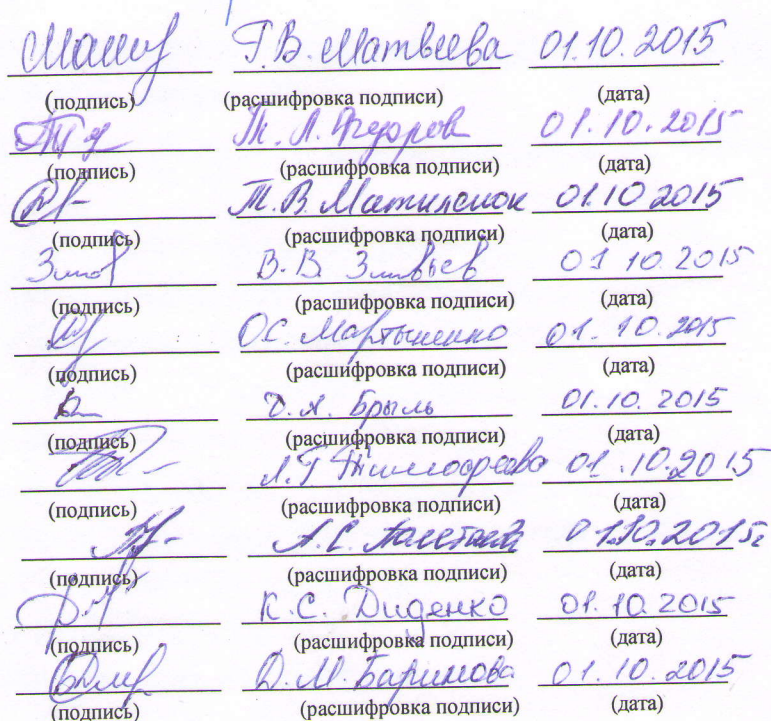 Г.В. Матвеева 01.10.2015
(подпись) (расшифровка подписи) (дата)
Т. А. Федоров 01.10.2015
(подпись) (расшифровка подписи) (дата)
Т. В. 01.10 2015
(подпись) (расшифровка подписи) (дата)
В. В. Зиновьев 01 10.2015
(подпись) (расшифровка подписи) (дата)
О.С. Мартыненко 01.10.2015
(подпись) (расшифровка подписи) (дата)
Брыль 01.10.2015
(подпись) (расшифровка подписи) (дата)
Л.Г. 01.10.2015
(подпись) (расшифровка подписи) (дата)
А.С. 01.10.2015г
(подпись) (расшифровка подписи) (дата)
К.С. Диденко 01.10.2015
(подпись) (расшифровка подписи) (дата)
Д.М. Баринова 01.10.2015
(подпись) (расшифровка подписи) (дата)